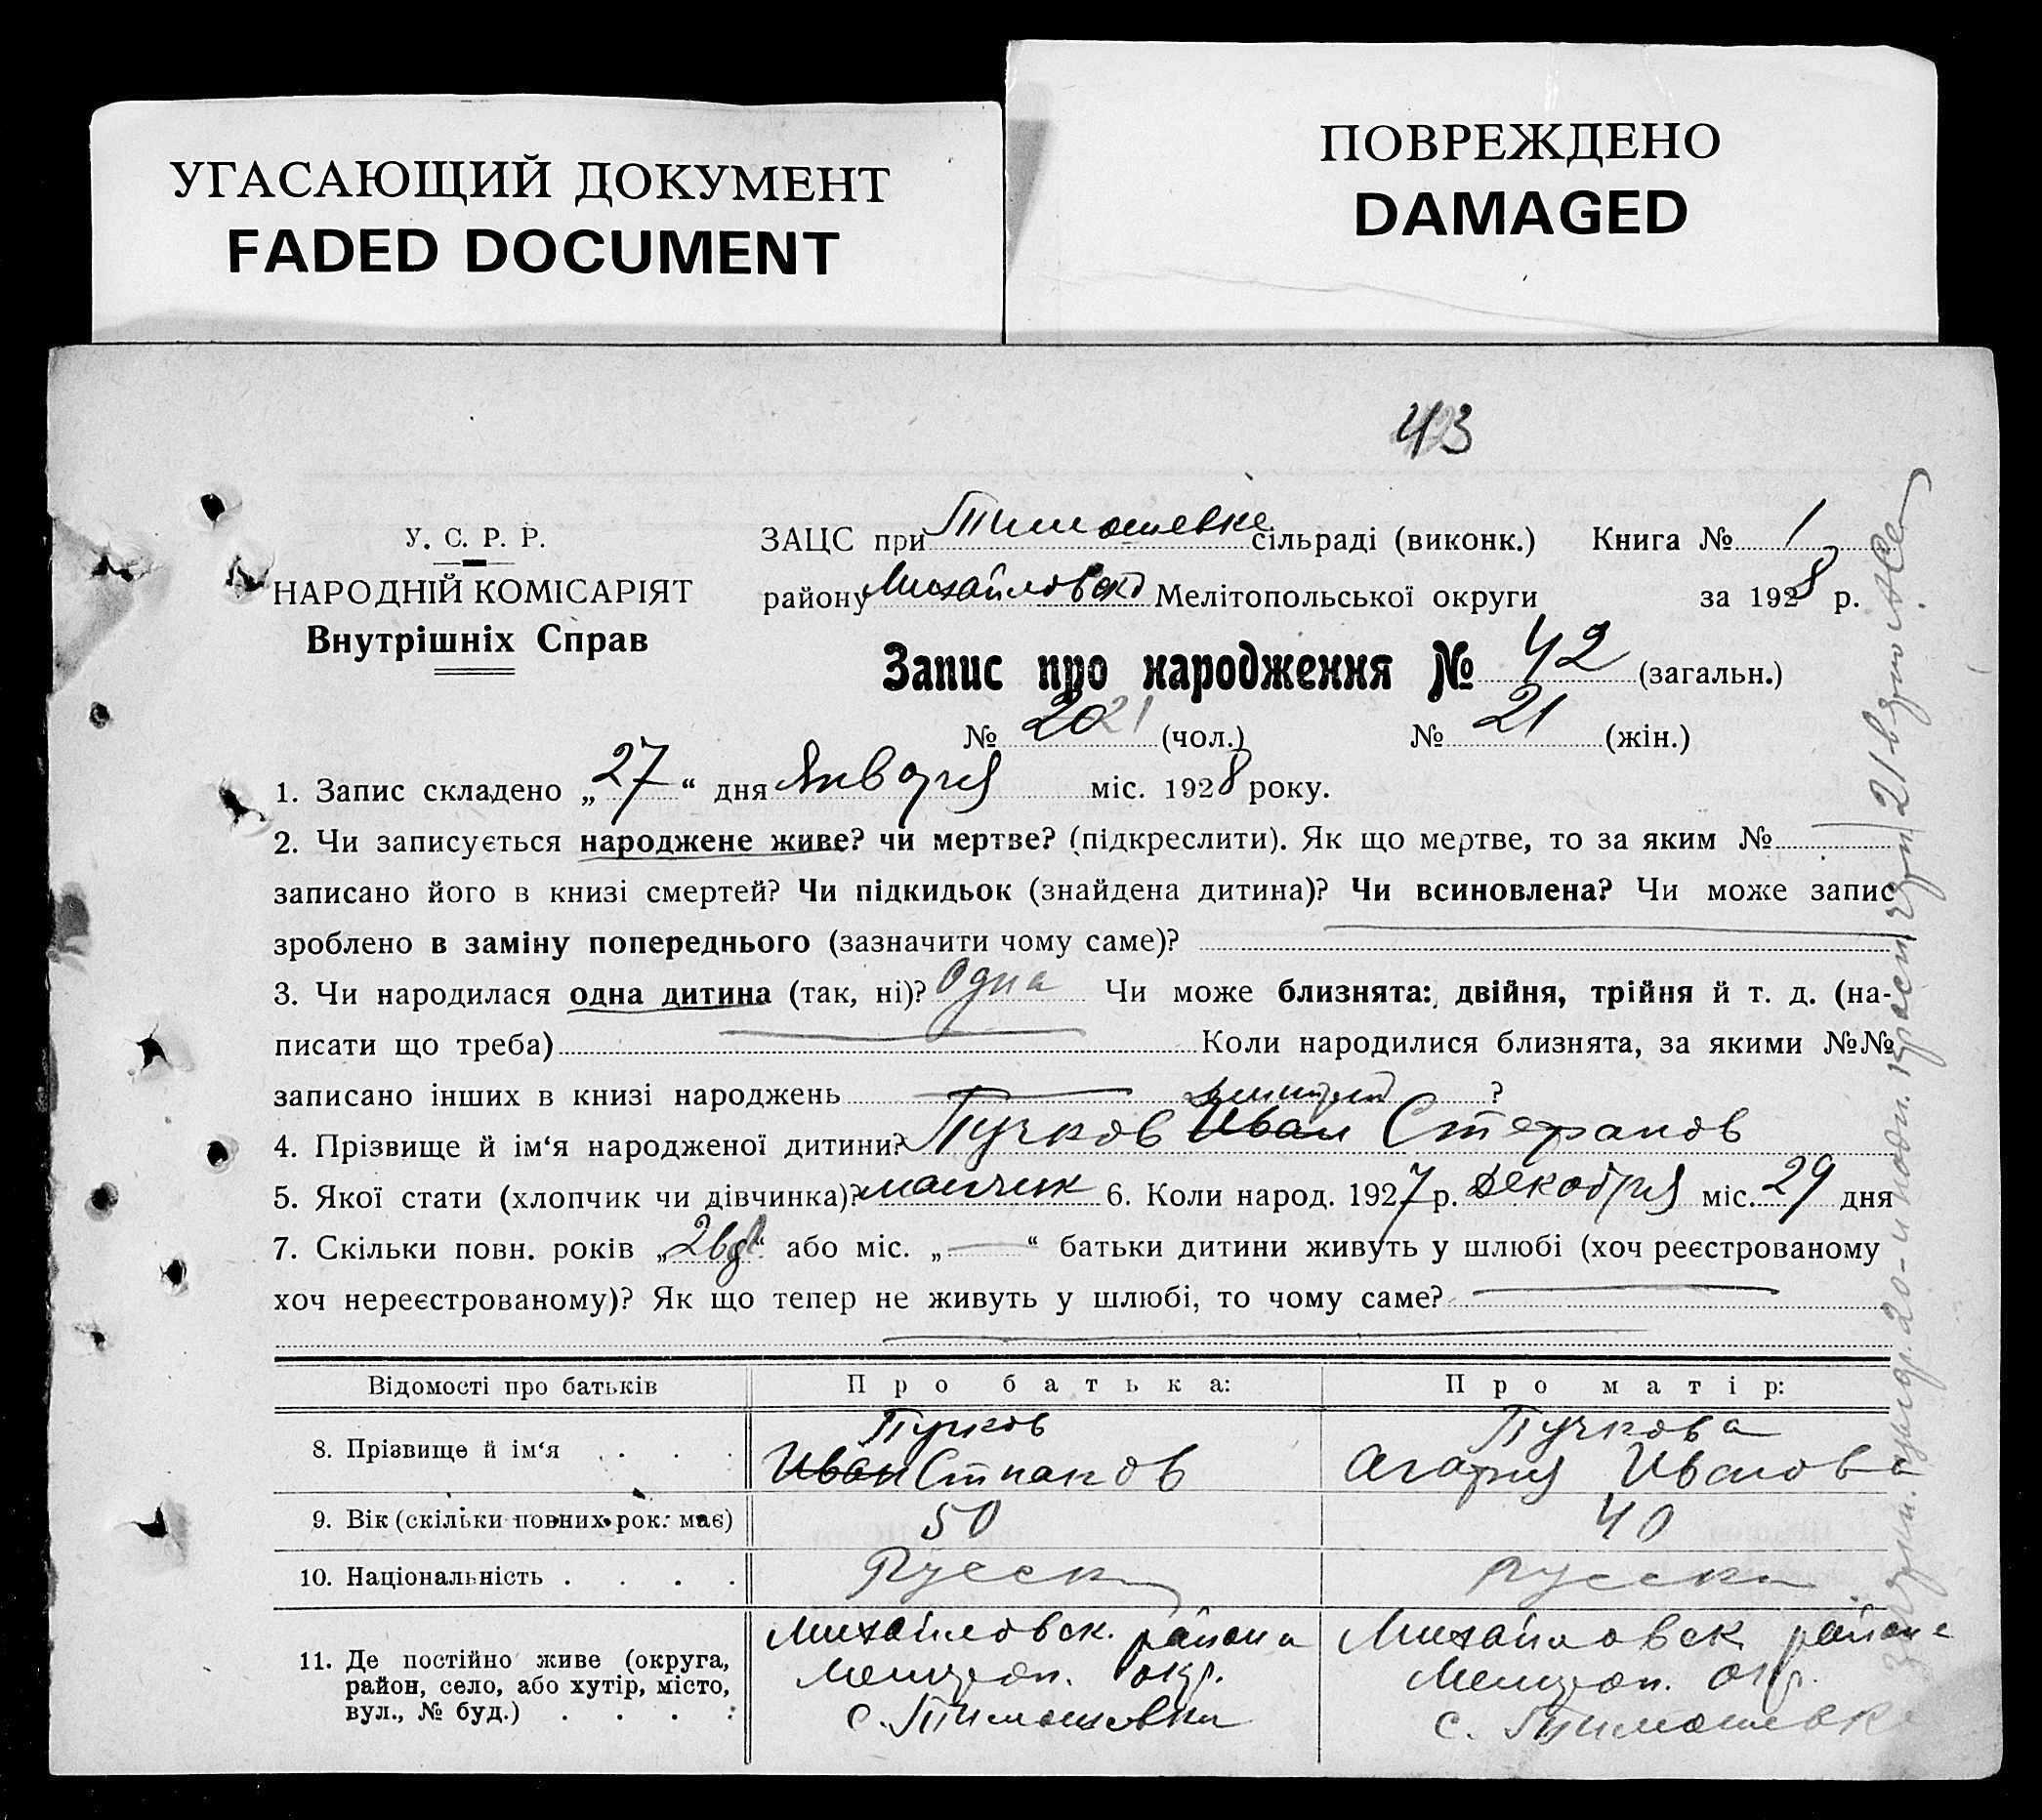 УГАСАЮЩИЙ ДОКУМЕНТ
FADED DOCUMENT
ПОВРЕЖДЕНО
DAMAGED
43
У. С. Р. Р.
НАРОДНІЙ КОМІСАРІЯТ
Внутрішніх Справ
ЗАЦС при Тимошевке сільраді (виконк.) Книга № 1
району Михайловско Мелітопольської округи за 1928 р.
Запис про народження № 42 (загальн.)
№ 20 21 (чол.) № 21 (жін.)
1. Запис складено „27“ дня Января міс. 1928 року.
2. Чи записується народжене живе? чи мертве? (підкреслити). Як що мертве, то за яким №
записано його в книзі смертей? Чи підкидьок (знайдена дитина)? Чи всиновлена? Чи може запис
зроблено в заміну попереднього (зазначити чому саме)?
3. Чи народилася одна дитина (так, ні)? Одна Чи може близнята: двійня, трійня й т. д. (на-
писати що треба) Коли народилися близнята, за якими №№
записано інших в книзі народжень ?
4. Прізвище й ім‘я народженої дитини? Пучков Иван Стефанов
5. Якої стати (хлопчик чи дівчинка)? мальчик 6. Коли народ. 1927 р. Декабря міс. 29 дня
7. Скільки повн. років „ “ або міс. „—“ батьки дитини живуть у шлюбі (хоч реєстрованому
хоч нереєстрованому)? Як що тепер не живуть у шлюбі, то чому саме?
Відомості про батьків Про батька: Про матір:
8. Прізвище й ім‘я . . . Пучков Пучкова
Иван Степанов Агафия Иванова
9. Вік (скільки повних рок. має) 50 40
10. Національність . . . . Русск Русска
11. Де постійно живе (округа, район, село, або хутір, місто, вул., № буд.) . . . .
Михайловск. района Михайловск района
Мелитоп. окр. Мелитоп. окр.
с. Тимошевки с. Тимошевке